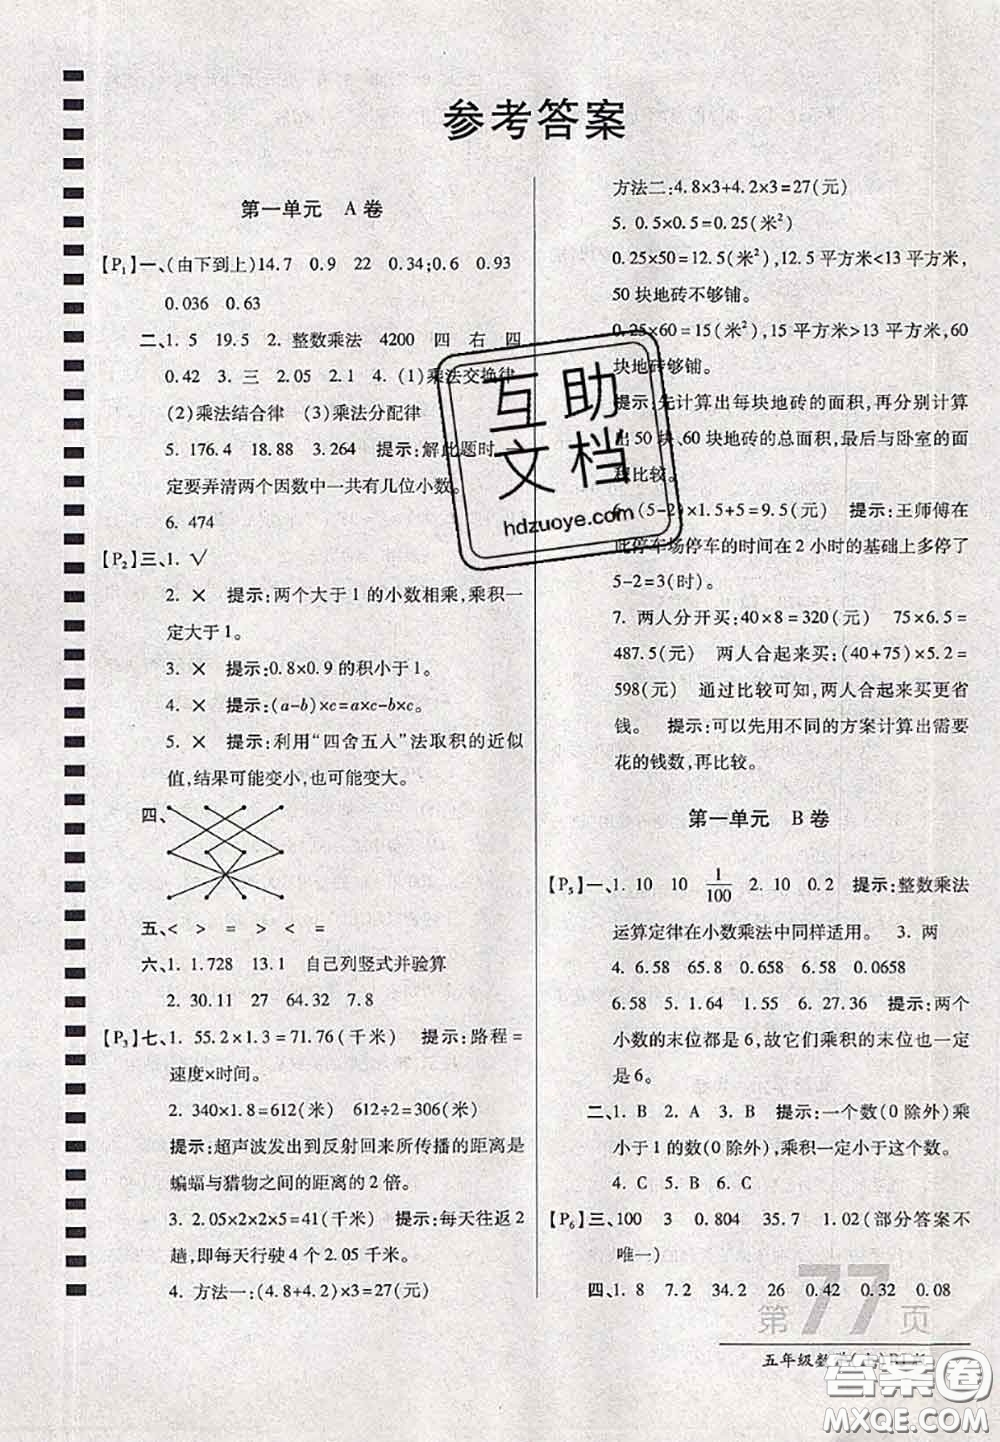 参考答案
第一单元 A卷
【P1】一、(由下到上)14.7 0.9 22 0.34;0.6 0.93
0.036 0.63
二、1. 5 19.5 2. 整数乘法 4200 四 右 四
0.42 3. 三 2.05 2.1 4. (1)乘法交换律
(2)乘法结合律 (3)乘法分配律
5. 176.4 18.88 3.264 提示:解此题时,一
定要弄清两个因数中一共有几位小数。
6. 474
【P2】三、1. √
2. × 提示:两个大于1的小数相乘,乘积一
定大于1。
3. × 提示:0.8×0.9的积小于1。
4. × 提示:(a-b)×c=a×c-b×c。
5. × 提示:利用“四舍五入”法取积的近似
值,结果可能变小,也可能变大。
四、
五、< > = > < =
六、1. 1.728 13.1 自己列竖式并验算
2. 30.11 27 64.32 7.8
【P3】七、1. 55.2×1.3=71.76(千米) 提示:路程=
速度×时间。
2. 340×1.8=612(米) 612÷2=306(米)
提示:超声波发出到反射回来所传播的距离是
蝙蝠与猎物之间的距离的2倍。
3. 2.05×2×2×5=41(千米) 提示:每天往返2
趟,即每天行驶4个2.05千米。
4. 方法一:(4.8+4.2)×3=27(元)
方法二:4.8×3+4.2×3=27(元)
5. 0.5×0.5=0.25(米²)
0.25×50=12.5(米²),12.5平方米<13平方米,
50块地砖不够铺。
0.25×60=15(米²),15平方米>13平方米,60
块地砖够铺。
提示:先计算出每块地砖的面积,再分别计算
出50块、60块地砖的总面积,最后与卧室的面
积比较。
6. (5-2)×1.5+5=9.5(元) 提示:王师傅在
此停车场停车的时间在2小时的基础上多停了
5-2=3(时)。
7. 两人分开买:40×8=320(元) 75×6.5=
487.5(元) 两人合起来买:(40+75)×5.2=
598(元) 通过比较可知,两人合起来买更省
钱。 提示:可以先用不同的方案计算出需要
花的钱数,再比较。
第一单元 B卷
【P5】一、1. 10 10 1/100 2. 10 0.2 提示:整数乘法
运算定律在小数乘法中同样适用。 3. 两
4. 6.58 65.8 0.658 6.58 0.0658
6.58 5. 1.64 1.55 6. 27.36 提示:两个
小数的末位都是6,故它们乘积的末位也一定
是6。
二、1. B 2. A 3. B 提示:一个数(0除外)乘
小于1的数(0除外),乘积一定小于这个数。
4. C 5. B 6. C
【P6】三、100 3 0.804 35.7 1.02(部分答案不
唯一)
四、1. 8 7.2 34.2 26 0.42 0.32 0.08
第77页
五年级数学(上)RJ
互助
文档
hdzuoye.com
答案圈
MXQE.COM